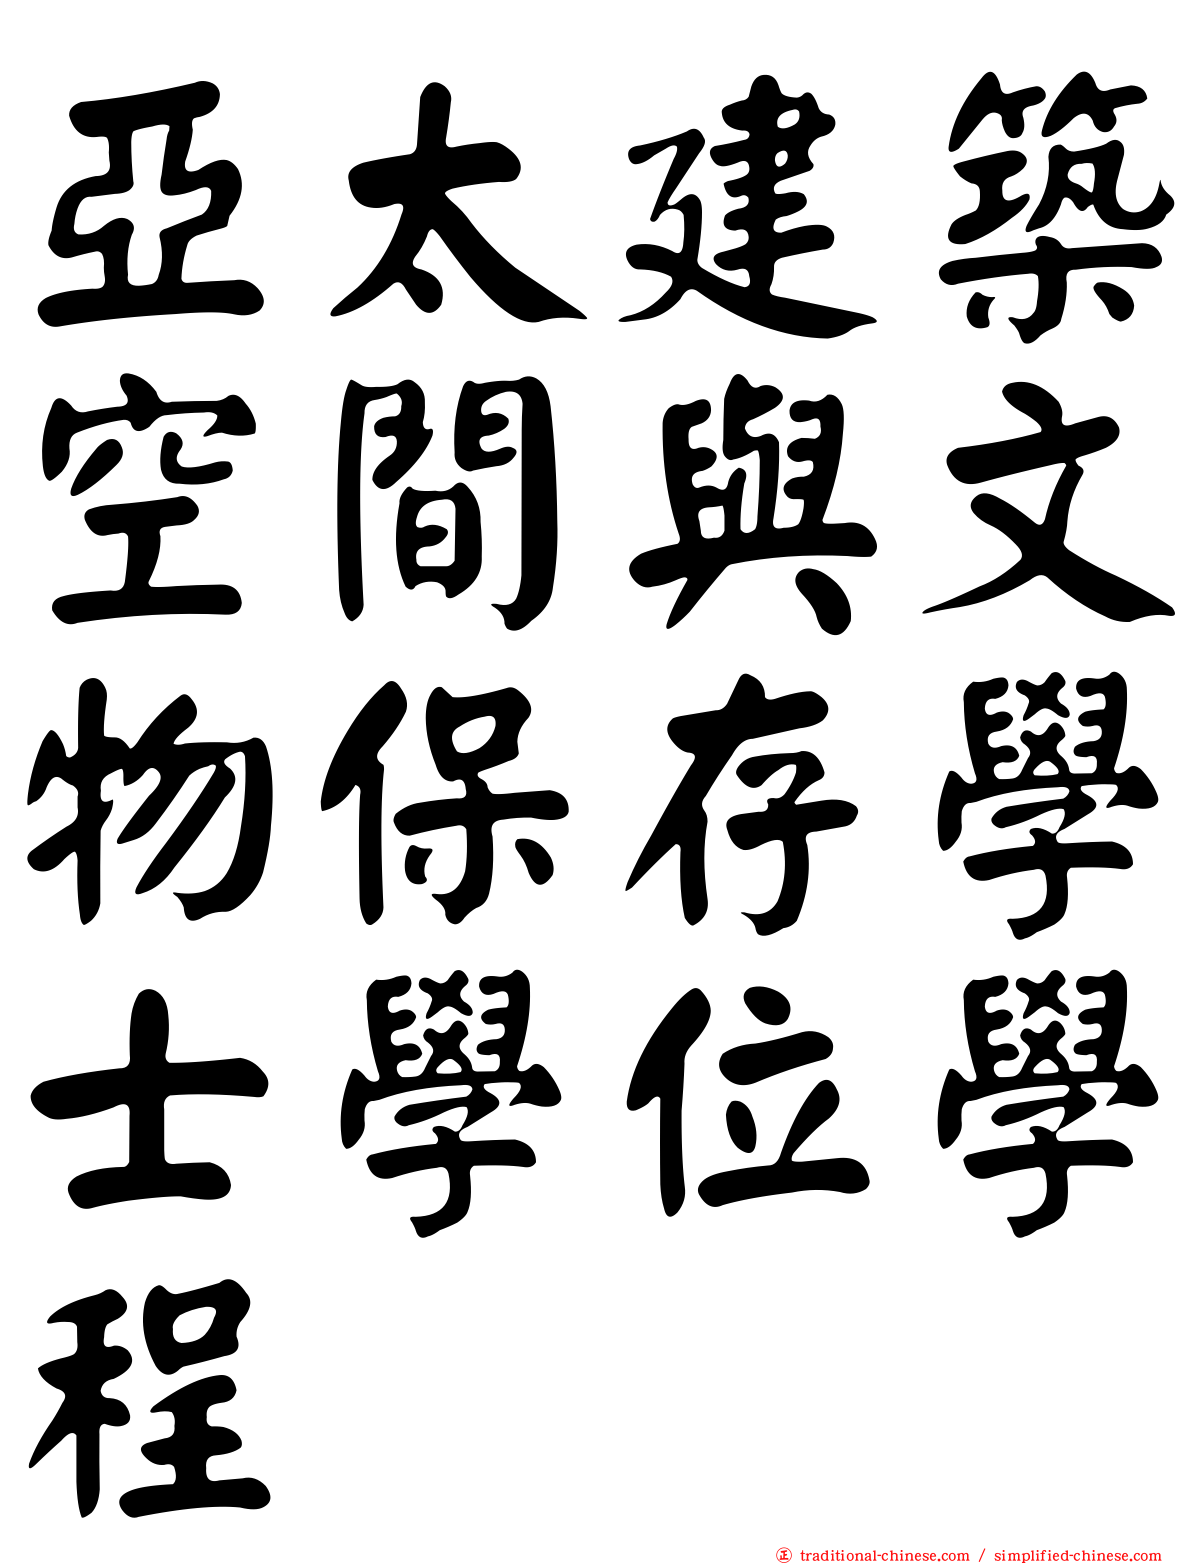 亞太建築
空間與文
物保存學
士學位學
程
㊣ traditional-chinese.com / simplified-chinese.com